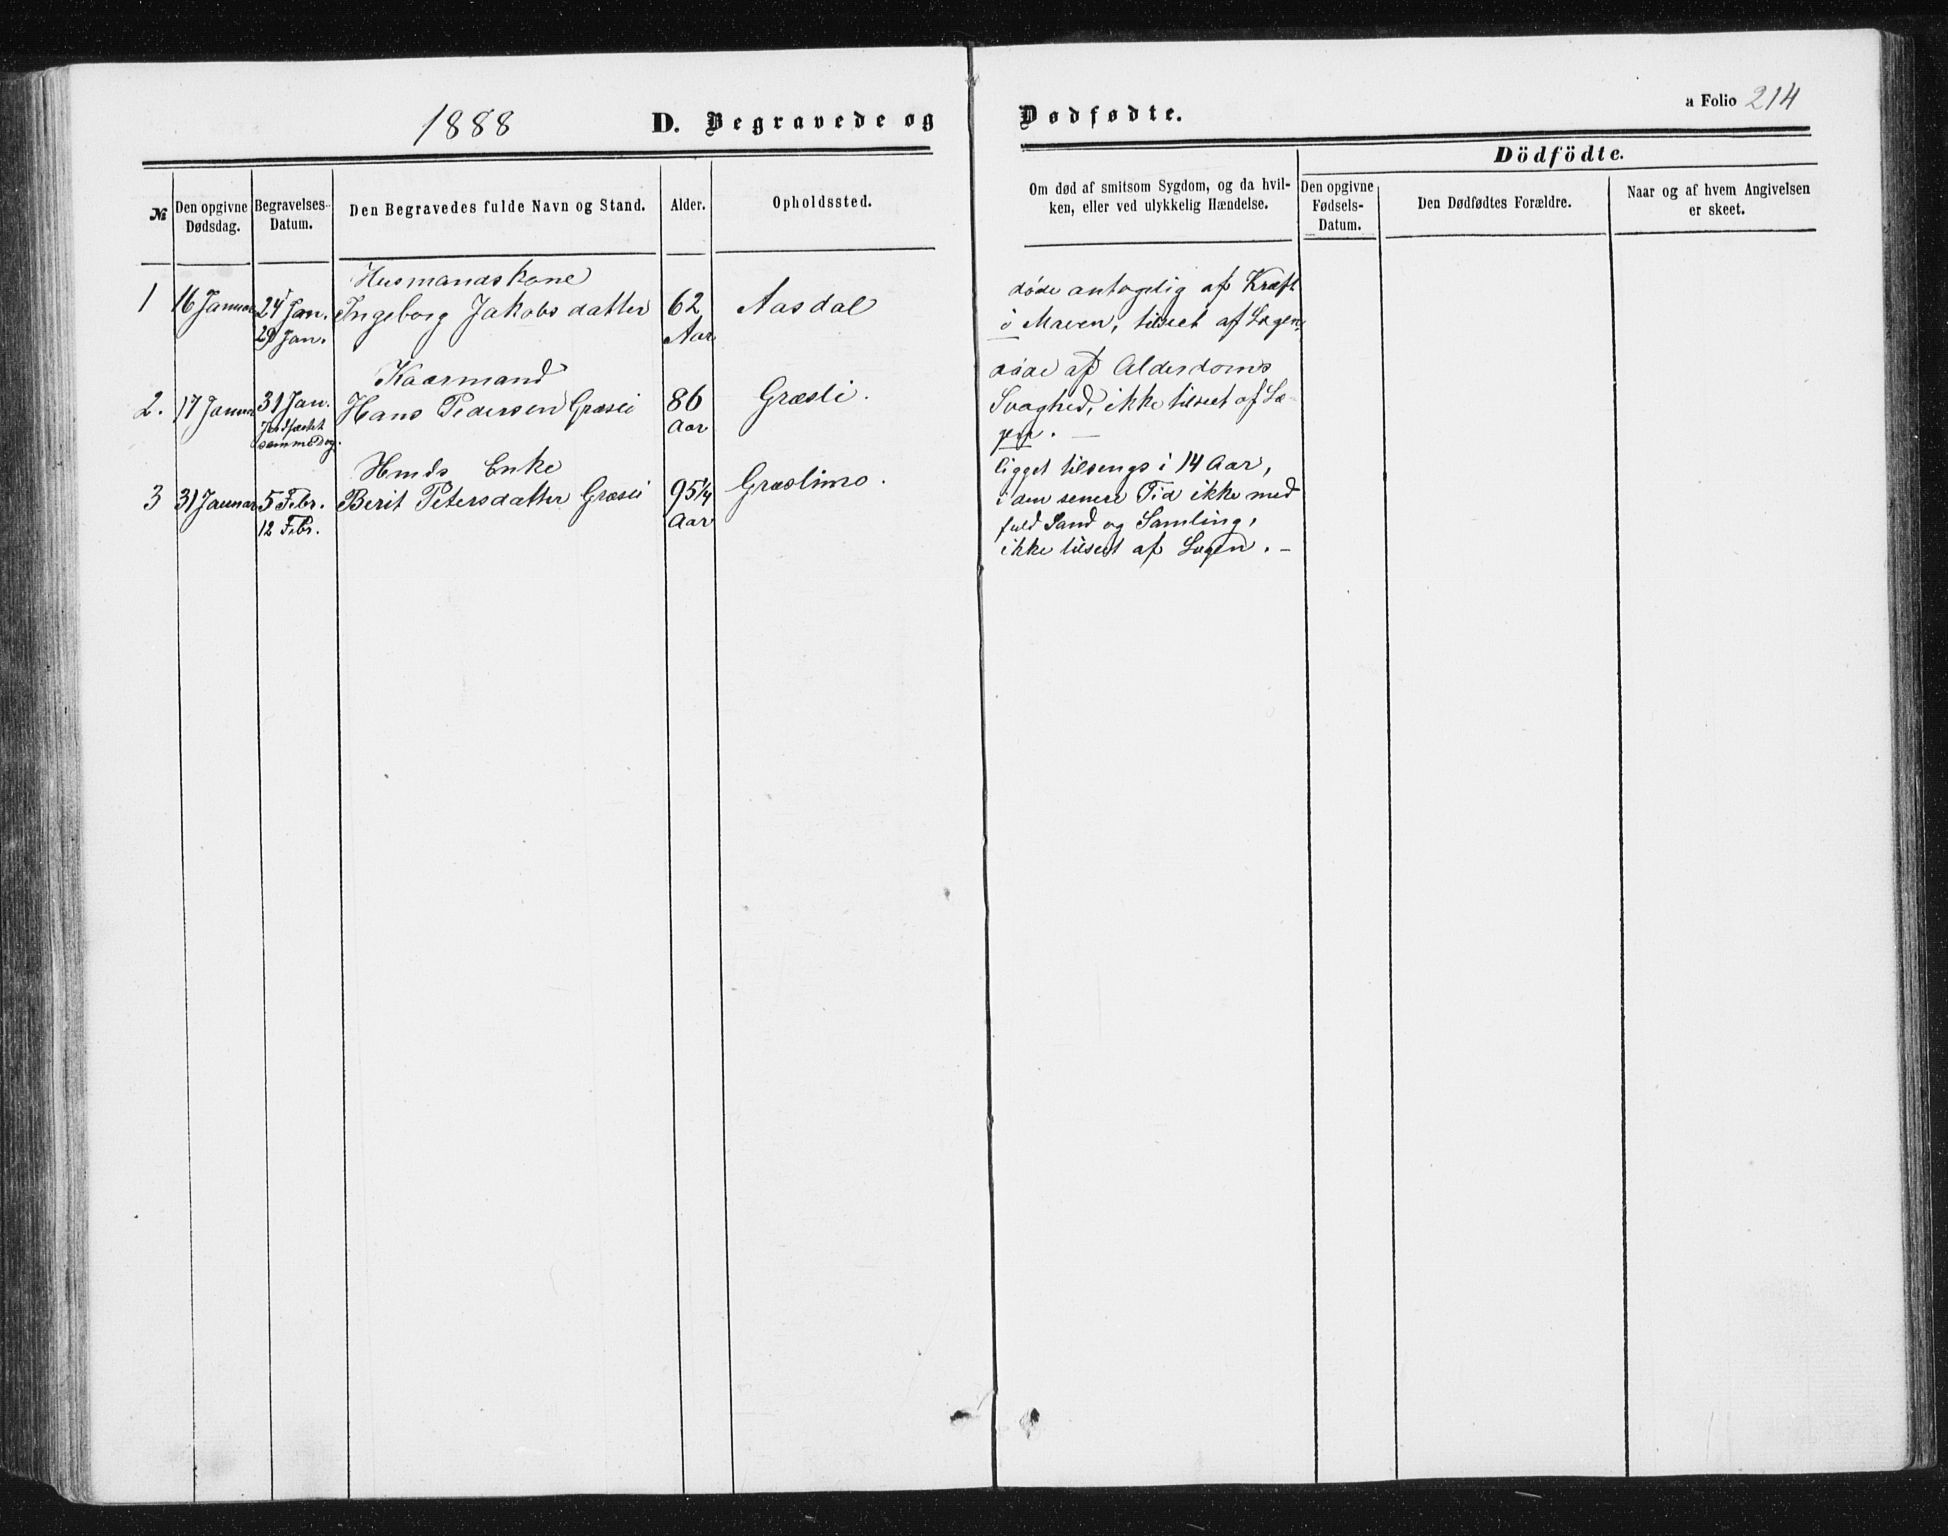 1888 D. Begravede og Dødfødte. a Folio 214
Dödfödte.
№
Den opgivne
Dødsdag.
Begravelses-
Datum.
Den Begravedes fulde Navn og Stand.
Alder.
Opholdssted.
Om død af smitsom Sygdom, og da hvil-
ken, eller ved ulykkelig Hændelse.
Den opgivne
Fødsels-
Datum.
Den Dødfødtes Forældre.
Naar og af hvem Angivelsen
er skeet.
1
16 Januar
24 Jan.
29 Jan.
Husmandskone
Ingeborg Jakobsdatter
62
Aar
Aasdal
døde antagelig af Kræft
i Maven, tilseet af Lægen,
2.
17 Januar
31 Jan.
Jordfæstet
samme Dag.
Kaarmand
Hans Pedersen Græsli
86
Aar
Græsli.
døde af Alderdoms
Svaghed, ikke tilseet af Læ-
gen. —
3
31 Januar
5 Febr.
12 Febr.
Hmds Enke
Berit Petersdatter Græsli
95 1/4
Aar
Græslimo.
ligget tilsengs i 14 Aar,
i den senere Tid ikke med
fuld Sand og Samling,
ikke tilseet af Lægen. —